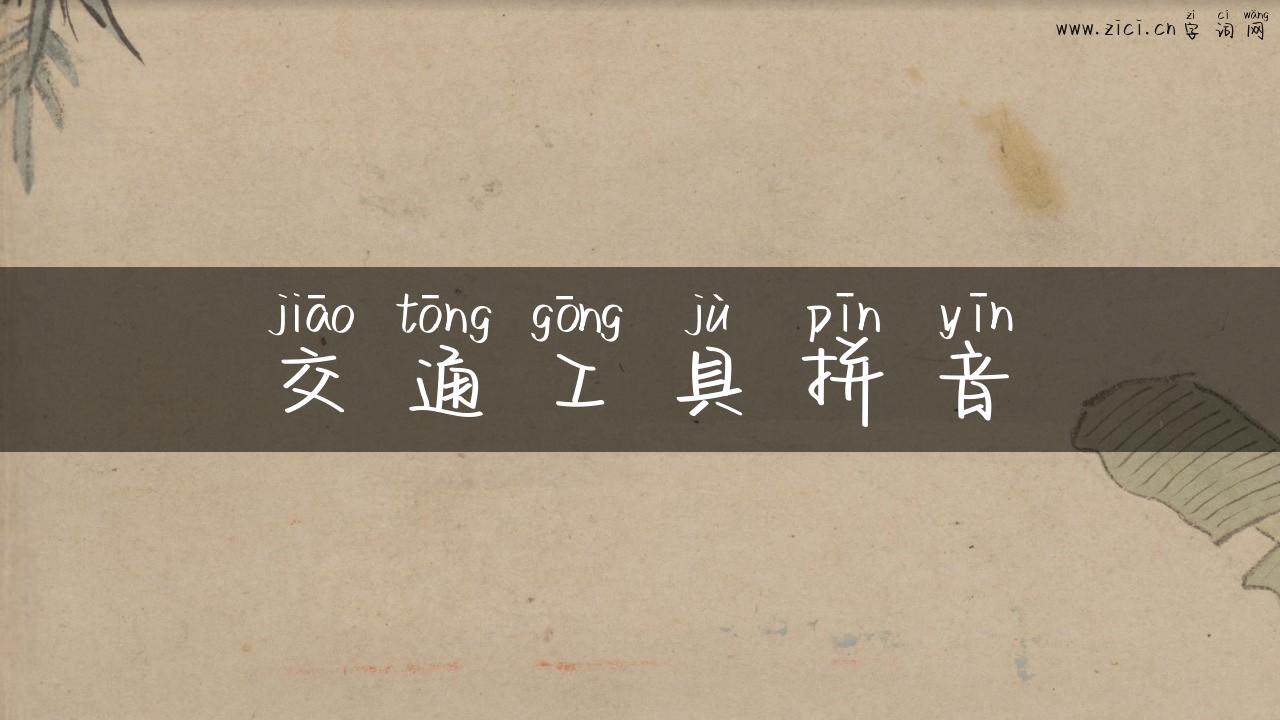 zì cí wǎng
www.zici.cn 字 词 网
jiāo tōng gōng jù pīn yīn
交 通 工 具 拼 音